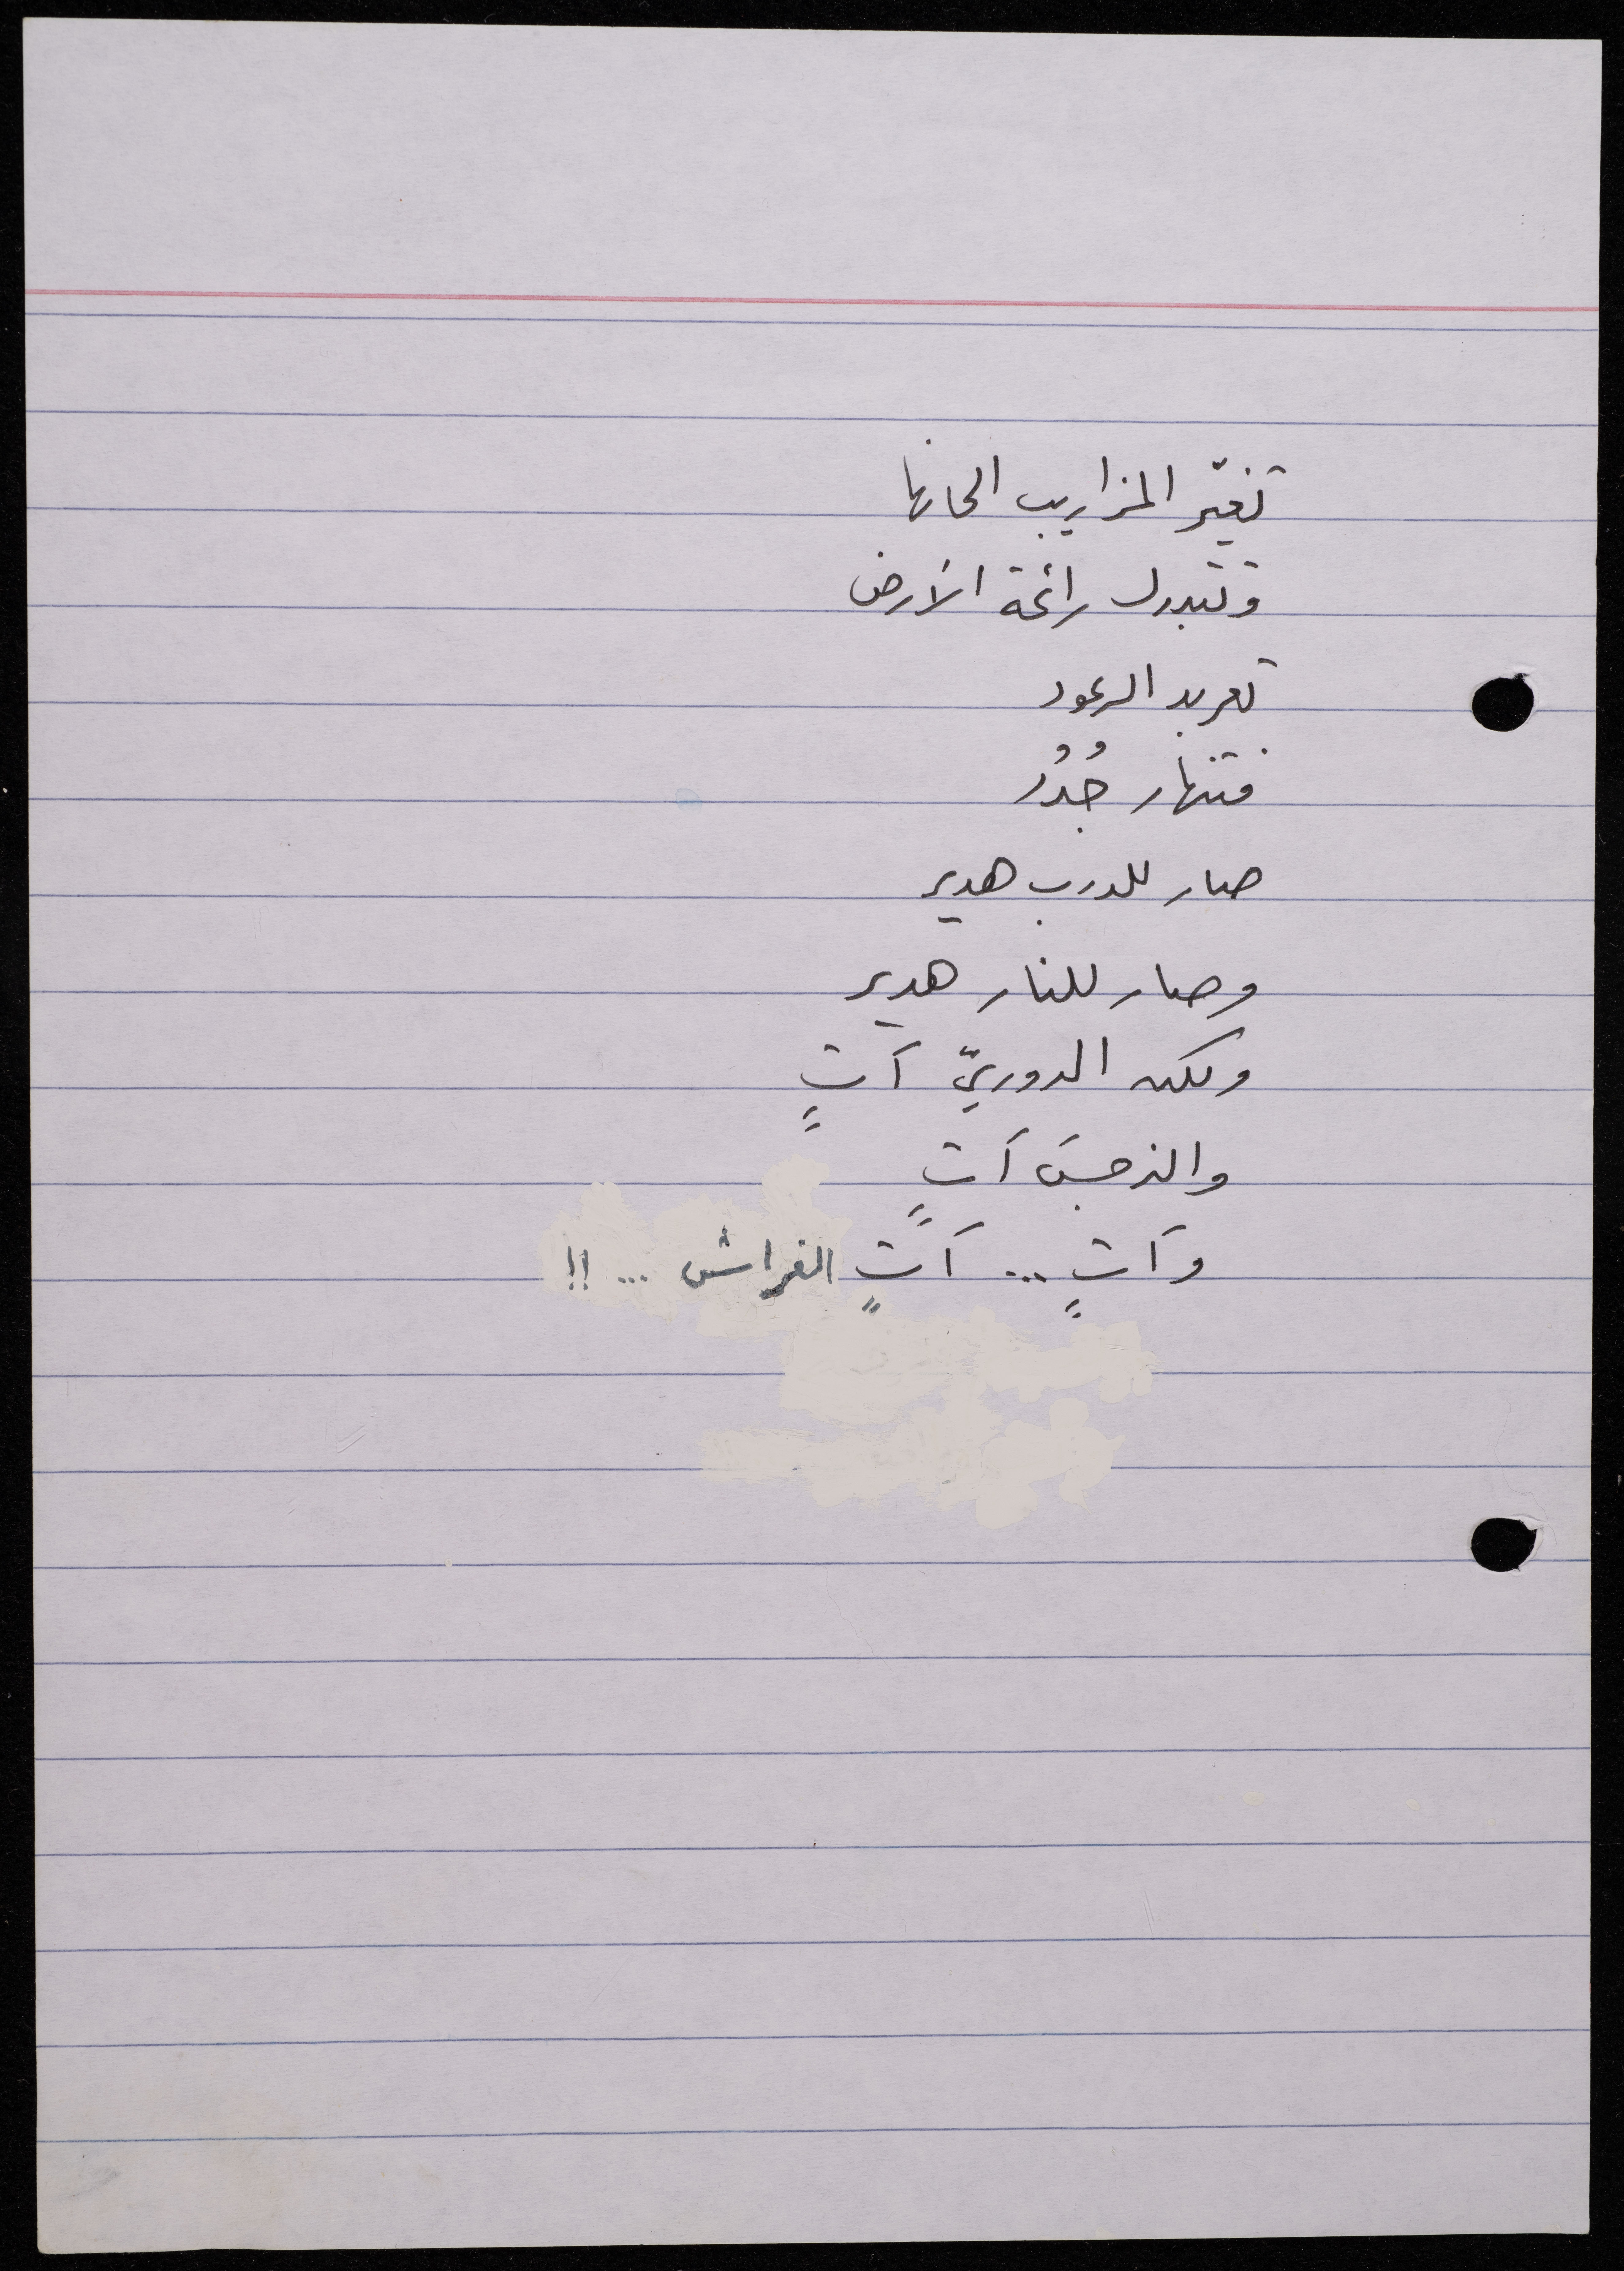 تغيّر المزاريب الحانها
وتتبدل رائحة الأرض
تعربد الرعود
فتنهار جُدُر
صار للدرب هدير
وصار للنار هدير
ولكن الدوريّ آتٍ
والنرجسَ آتٍ
وآتٍ ... آتٍ الفراش ... !!